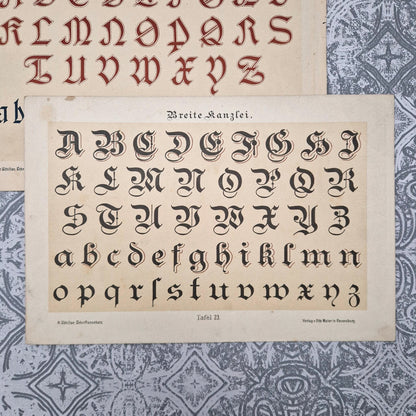 K L M N O P Q R S
T U V W X Y Z
Breite Kanzlei.
A B C D E F G H I
K L M N O P Q R
S T U V W X Y Z
a b c d e f g h i k l m n
o p q r ſ s t u v w x y z
Tafel 23.
Verlag v. Otto Maier in Ravensburg.